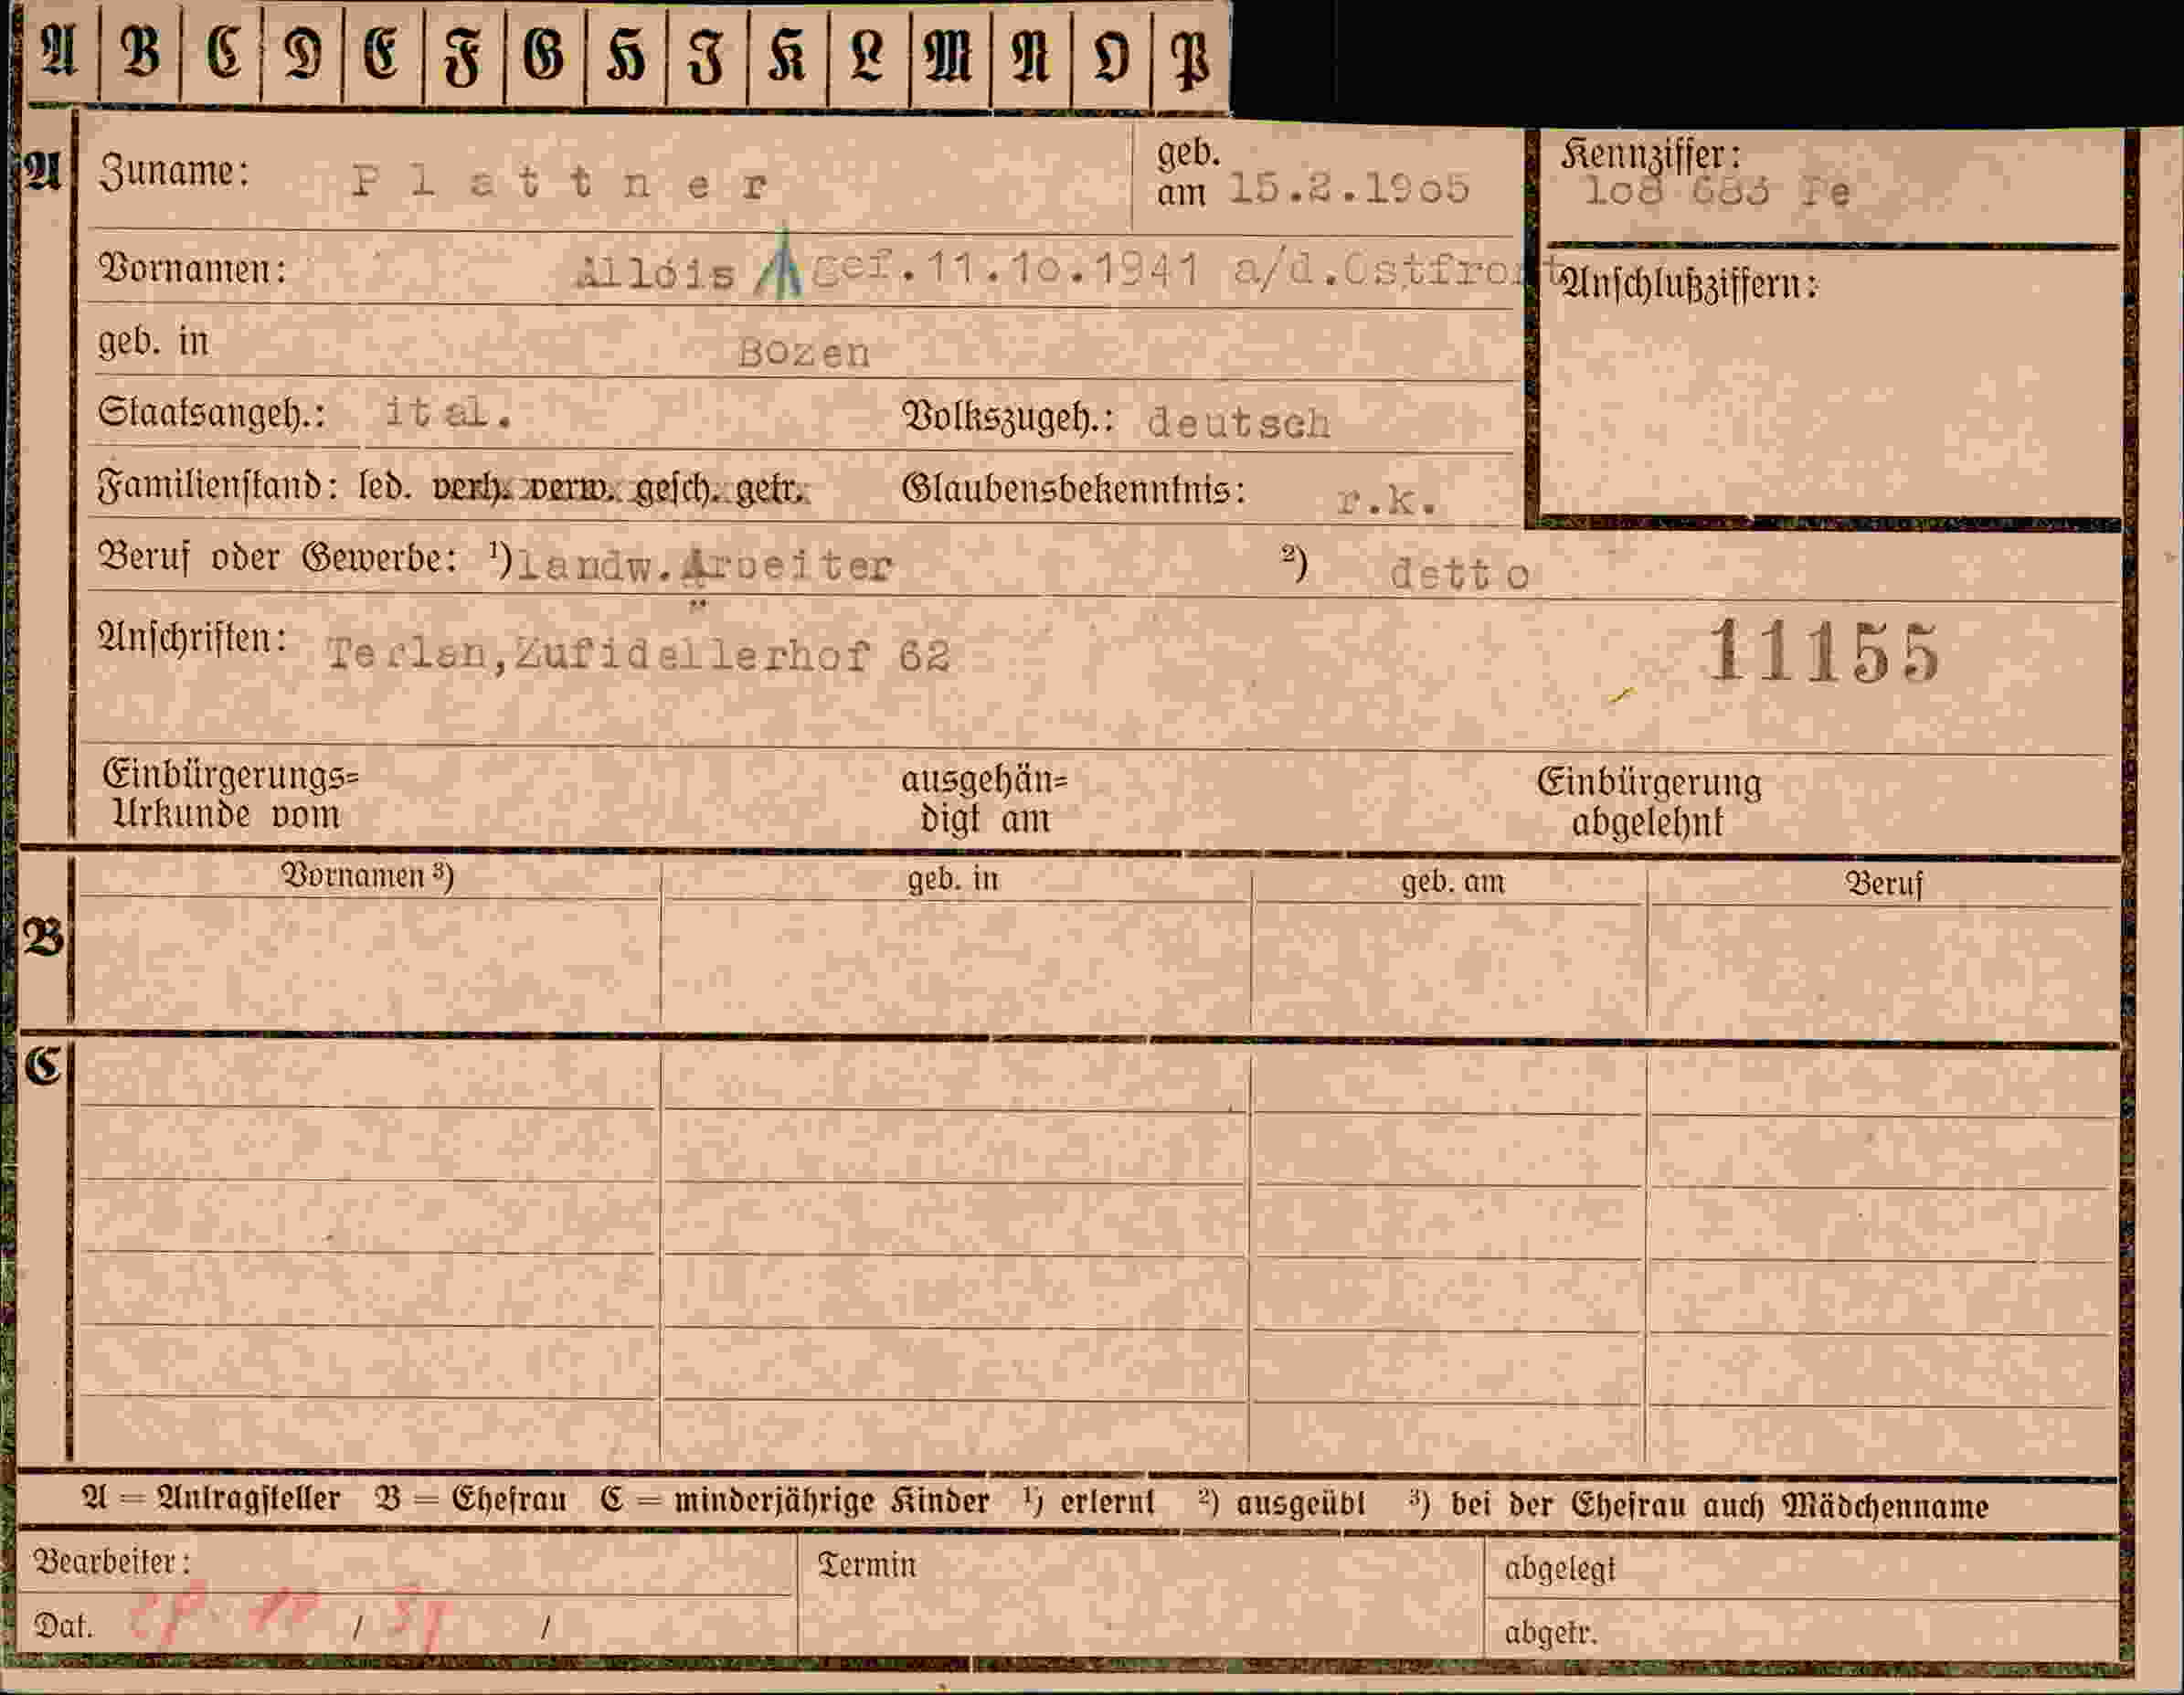 A B C D E F G H I K L M N O P
A Zuname: Plattner geb. am 15.2.1905 Kennziffer: 108 683 Pe
Vornamen: Allois gef.11.10.1941 a/d.Ostfront Anschlußziffern:
geb. in Bozen
Staatsangeh.: ital. Volkszugeh.: deutsch
Familienstand: led. verh. verw. gesch. getr. Glaubensbekenntnis: r.k.
Beruf oder Gewerbe: ¹) landw.Arbeiter ²) detto
Anschriften: Terlan, 62 11155
Einbürgerungs= ausgehän= Einbürgerung
Urkunde vom digt am abgelehnt
Vornamen ³) geb. in geb. am Beruf
B
C
A = Antragsteller B = Ehefrau C = minderjährige Kinder ¹) erlernt ²) ausgeübt ³) bei der Ehefrau auch Mädchenname
Bearbeiter: Termin abgelegt
Dat. / / abgetr.